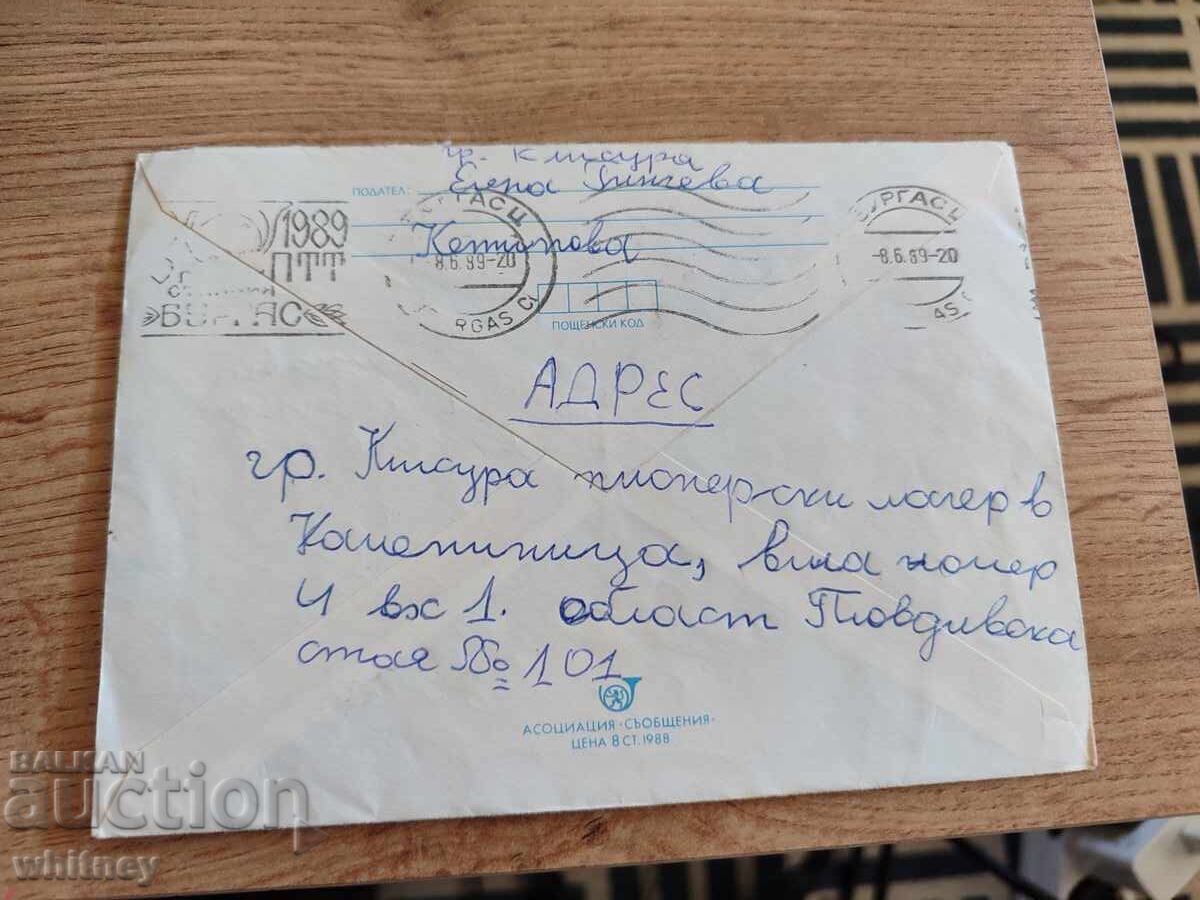 гр. Клисура
ПОДАТЕЛ: Елена
1989
ПТТ
БУРГАС
БУРГАС Ц
8.6.89-20
RGAS C
БУРГАС Ц
-8.6.89-20
AS
ПОЩЕНСКИ КОД
АДРЕС
гр. Клисура пионерски лагер в
вила номер
4 вх 1. област Пловдивска
стая № 101
АСОЦИАЦИЯ "СЪОБЩЕНИЯ"
ЦЕНА 8 СТ. 1988
BALKAN
auction
whitney